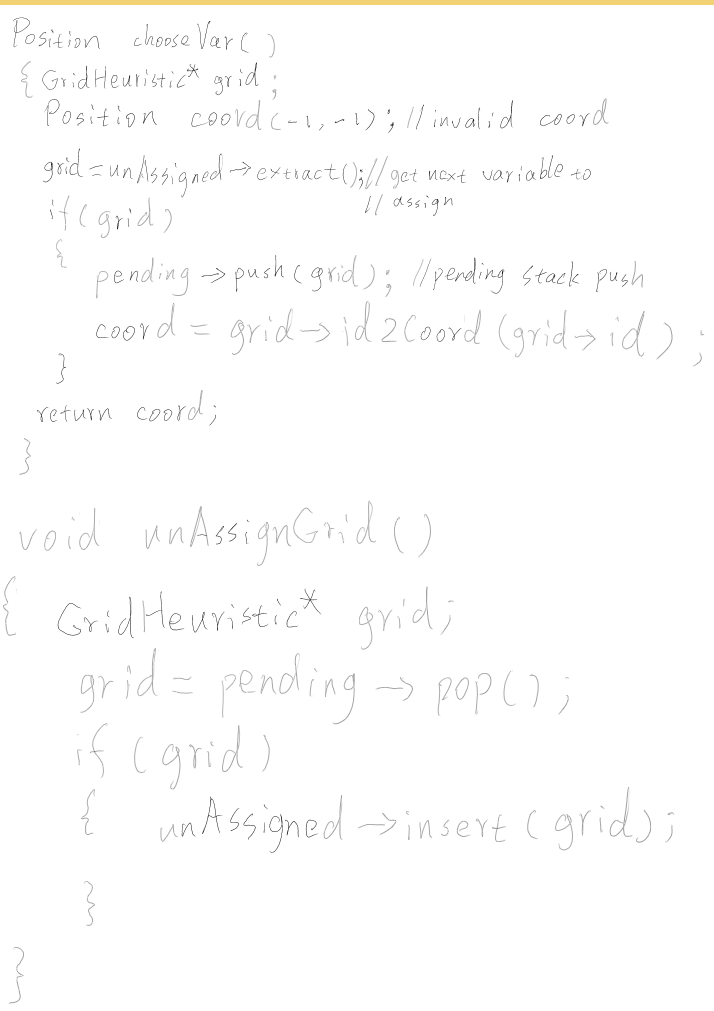 Position chooseVar()
{ GridHeuristic* grid;
Position coord(-1,-1); //invalid coord
grid=unAssigned->extract(); //get next variable to
// assign
if(grid)
{
pending->push(grid); //pending stack push
coord = grid->id2Coord(grid->id);
}
return coord;
}
void unAssignGrid()
{ GridHeuristic* grid;
grid = pending->pop();
if (grid)
{ unAssigned->insert(grid);
}
}